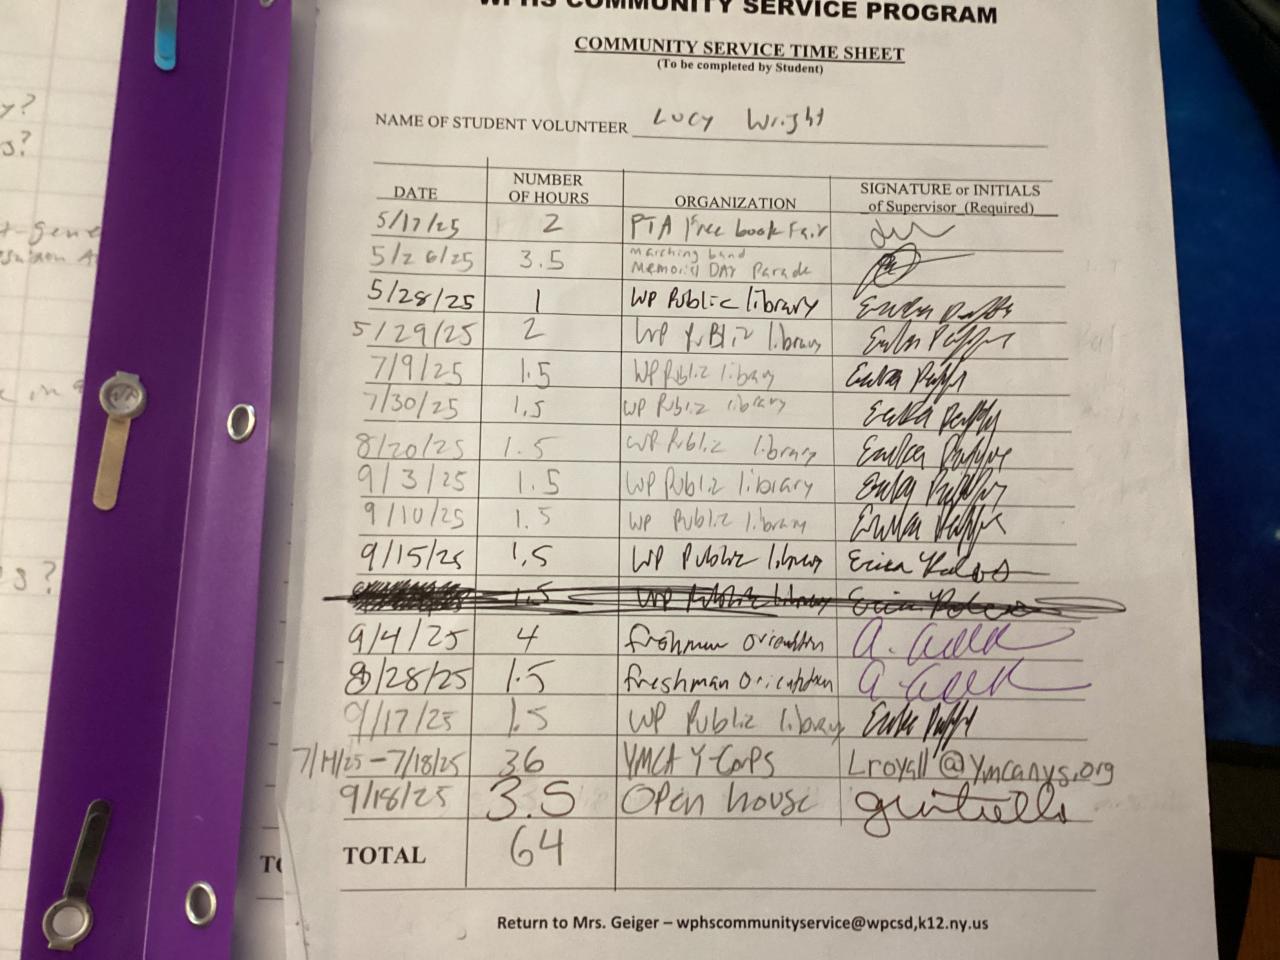 WPHS COMMUNITY SERVICE PROGRAM
COMMUNITY SERVICE TIME SHEET
(To be completed by Student)
NAME OF STUDENT VOLUNTEER Lucy Wright
DATE NUMBER OF HOURS ORGANIZATION SIGNATURE or INITIALS of Supervisor (Required)
5/17/25 2 PTA Free book Fair
5/26/25 3.5 Marching band Memorial DAY Parade
5/28/25 1 WP Public library
5/29/25 2 WP Public library
7/9/25 1.5 WP Public library
7/30/25 1.5 WP Public library
8/20/25 1.5 WP Public library
9/3/25 1.5 WP Public library
9/10/25 1.5 WP Public library
9/15/25 1.5 WP Public library Erica
1.5 WP Public library Erica
9/4/25 4 freshman orientation
8/28/25 1.5 freshman orientation
9/17/25 1.5 WP Public library
7/14/25-7/18/25 36 YMCA Y-Corps Lroyall@ymcanys.org
9/18/25 3.5 Open house
TOTAL 64
Return to Mrs. Geiger – wphscommunityservice@wpcsd,k12.ny.us